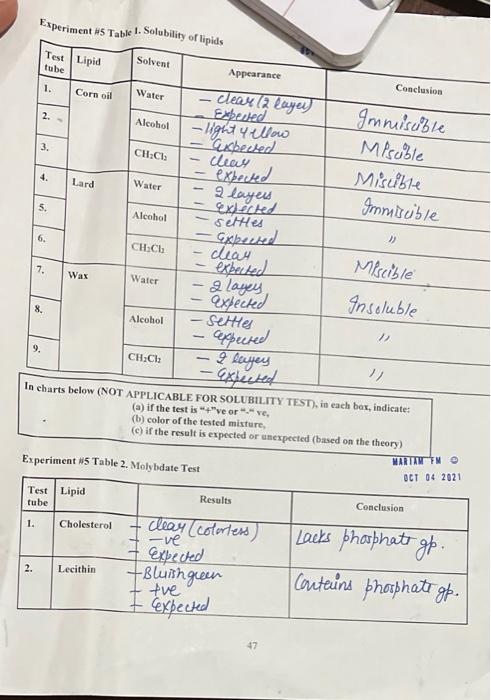 Experiment #5 Table 1. Solubility of lipids
Test tube Lipid Solvent Appearance Conclusion
1. Corn oil Water – clear (2 layer) – Expected Immiscible
2. Alcohol – light yellow – Expected Miscible
3. CH2Cl2 – clear – expected Miscible
4. Lard Water – 2 layers – expected Immiscible
5. Alcohol – settles – Expected "
6. CH2Cl2 – clear – expected Miscible
7. Wax Water – 2 layers – expected Insoluble
8. Alcohol – settles – expected "
9. CH2Cl2 – 2 layers – Expected "
In charts below (NOT APPLICABLE FOR SOLUBILITY TEST), in each box, indicate:
(a) if the test is "+"ve or "-" ve,
(b) color of the tested mixture,
(c) if the result is expected or unexpected (based on the theory)
MARIAM FM
OCT 04 2021
Experiment #5 Table 2. Molybdate Test
Test tube Lipid Results Conclusion
1. Cholesterol – clear (colorless) – -ve – Expected Lacks phosphate gp.
2. Lecithin – Bluish green – +ve – Expected Contains phosphate gp.
47